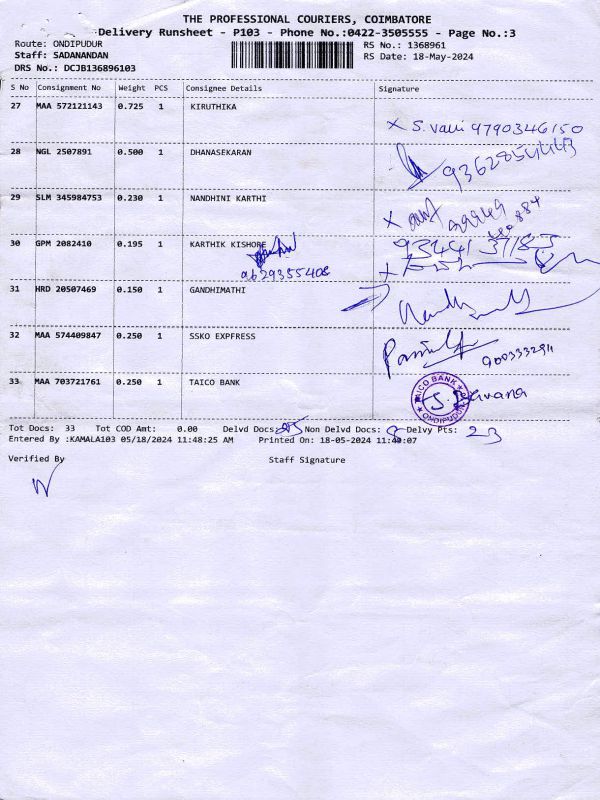 THE PROFESSIONAL COURIERS, COIMBATORE
Delivery Runsheet - P103 - Phone No.:0422-3505555 - Page No.:3
Route: ONDIPUDUR
RS No.: 1368961
Staff: SADANANDAN
RS Date: 18-May-2024
DRS No.: DCJB136896103
S No Consignment No Weight PCS Consignee Details Signature
27 MAA 572121143 0.725 1 KIRUTHIKA
x S. Valli 9790346150
28 NGL 2507891 0.500 1 DHANASEKARAN
29 SLM 345984753 0.230 1 NANDHINI KARTHI
30 GPM 2082410 0.195 1 KARTHIK KISHORE
9629355408
31 HRD 20507469 0.150 1 GANDHIMATHI
32 MAA 574409847 0.250 1 SSKO EXPFRESS
33 MAA 703721761 0.250 1 TAICO BANK
TAICO BANK
ONDIPUDUR
Tot Docs: 33 Tot COD Amt: 0.00 Delvd Docs: Non Delvd Docs: Delvy Pts: 23
Entered By :KAMALA103 05/18/2024 11:48:25 AM Printed On: 18-05-2024 11:40:07
Verified By Staff Signature